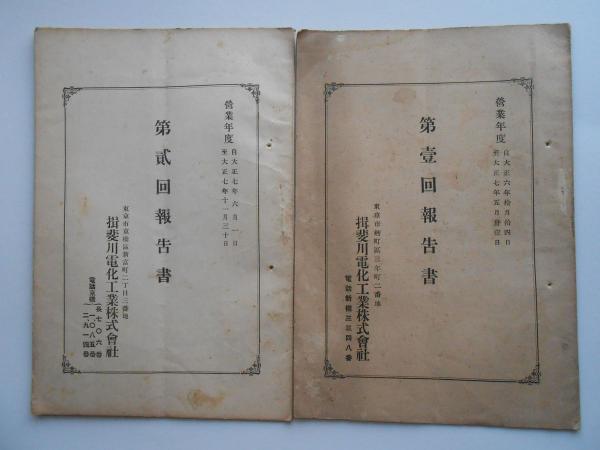 營業年度
自大正六年拾月拾四日
至大正七年五月卅壹日
第壹回報告書
東京市麹町區三年町二番地
揖斐川電化工業株式會社
電話新橋三三四八番
營業年度
自大正七年六月一日
至大正七年十一月三十日
第貳回報告書
東京市京橋區新富町二丁目三番地
揖斐川電化工業株式會社
電話京橋
長七〇六番
一、〇八五番
二、九一四番